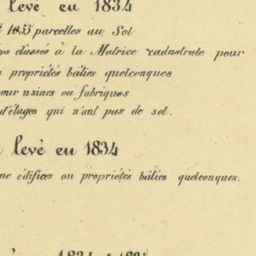 levé en 1834
1855 parcelles au Sol
classés à la Matrice cadastrale pour
propriétés bâties quelconques
pour usines ou fabriques
d'étages qui n'ont pas de sol.
levé en 1834
édifices ou propriétés bâties quelconques.